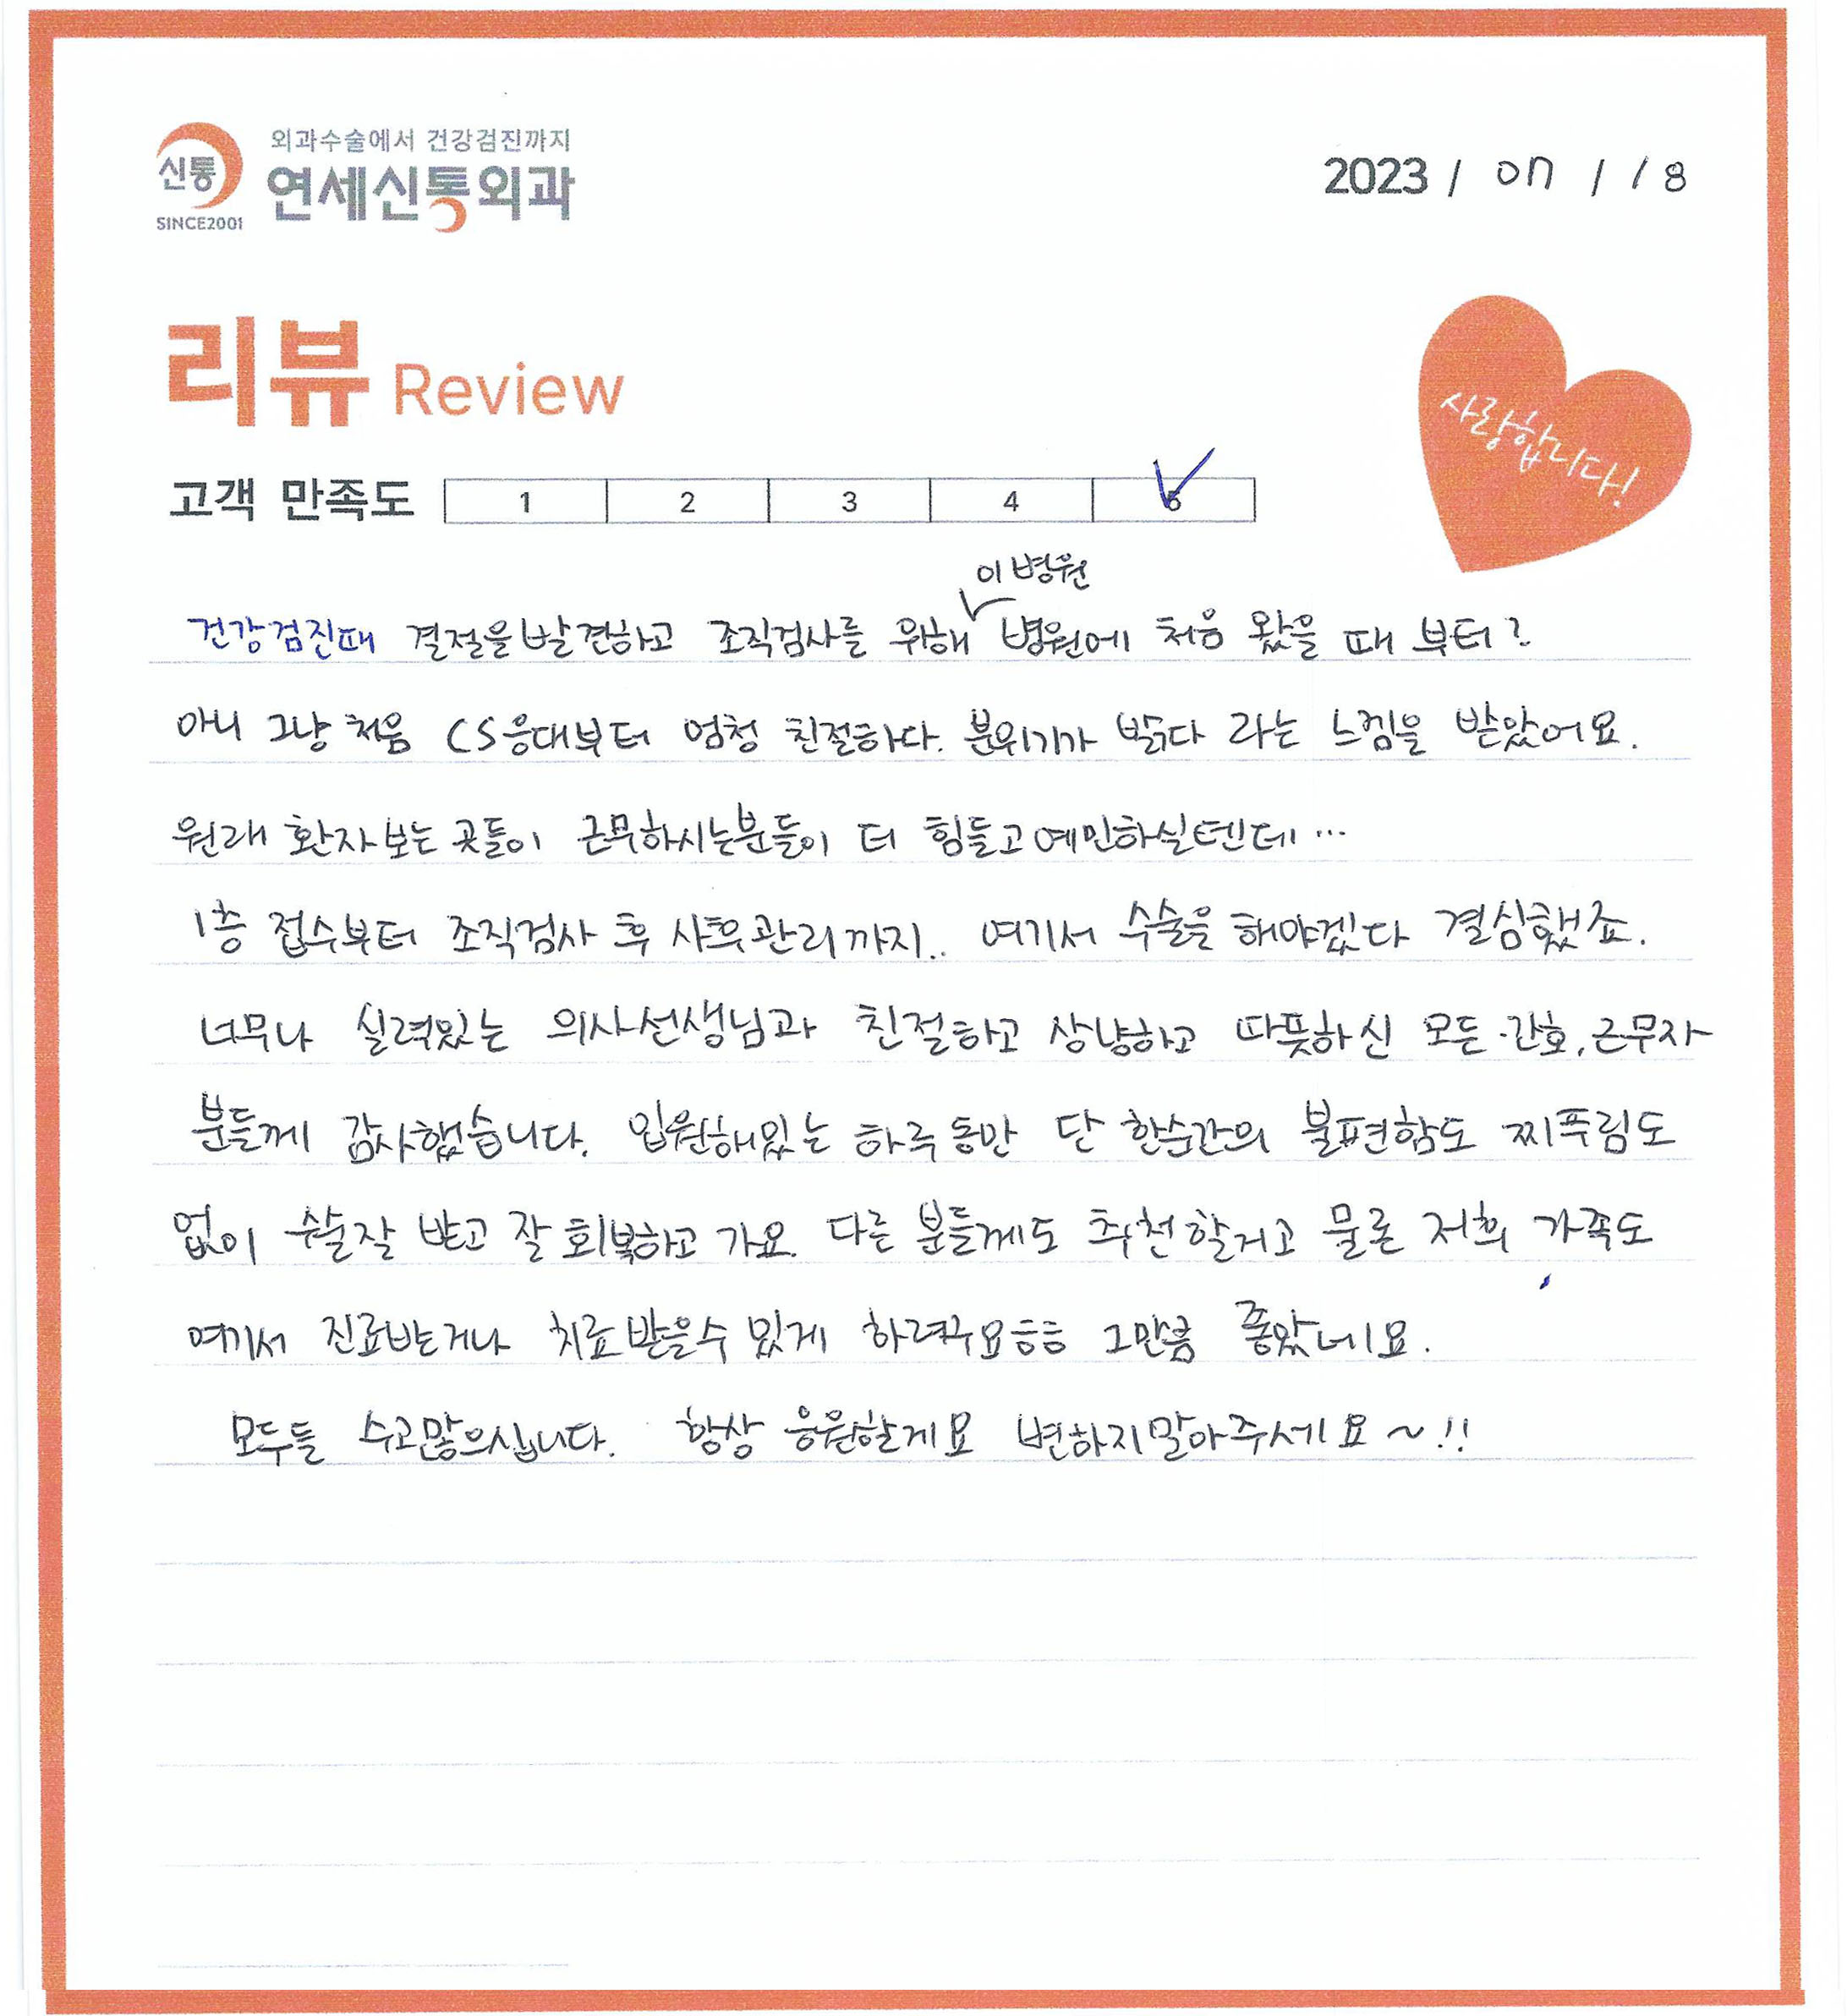 신통
SINCE2001
외과수술에서 건강검진까지
연세신통외과
2023 / 07 / 18
리뷰 Review
사랑합니다!
고객 만족도 1 2 3 4 5
이 병원
건강검진때 결절을 발견하고 조직검사를 위해 병원에 처음 왔을 때 부터?
아니 그냥 처음 CS응대부터 엄청 친절하다. 분위기가 밝다 라는 느낌을 받았어요.
원래 환자보는 곳들이 근무하시는분들이 더 힘들고 예민하실텐데...
1층 접수부터 조직검사 후 사후관리까지.. 여기서 수술을 해야겠다 결심했죠.
너무나 실력있는 의사선생님과 친절하고 상냥하고 따뜻하신 모든 간호, 근무자
분들께 감사했습니다. 입원해있는 하루동안 단 한순간의 불편함도 찌푸림도
없이 수술잘 받고 잘 회복하고 가요. 다른 분들께도 추천할거고 물론 저희 가족도
여기서 진료받거나 치료받을수 있게 하려구요ㅎㅎ 그만큼 좋았네요.
모두들 수고많으십니다. 항상 응원할게요 변하지말아주세요~!!